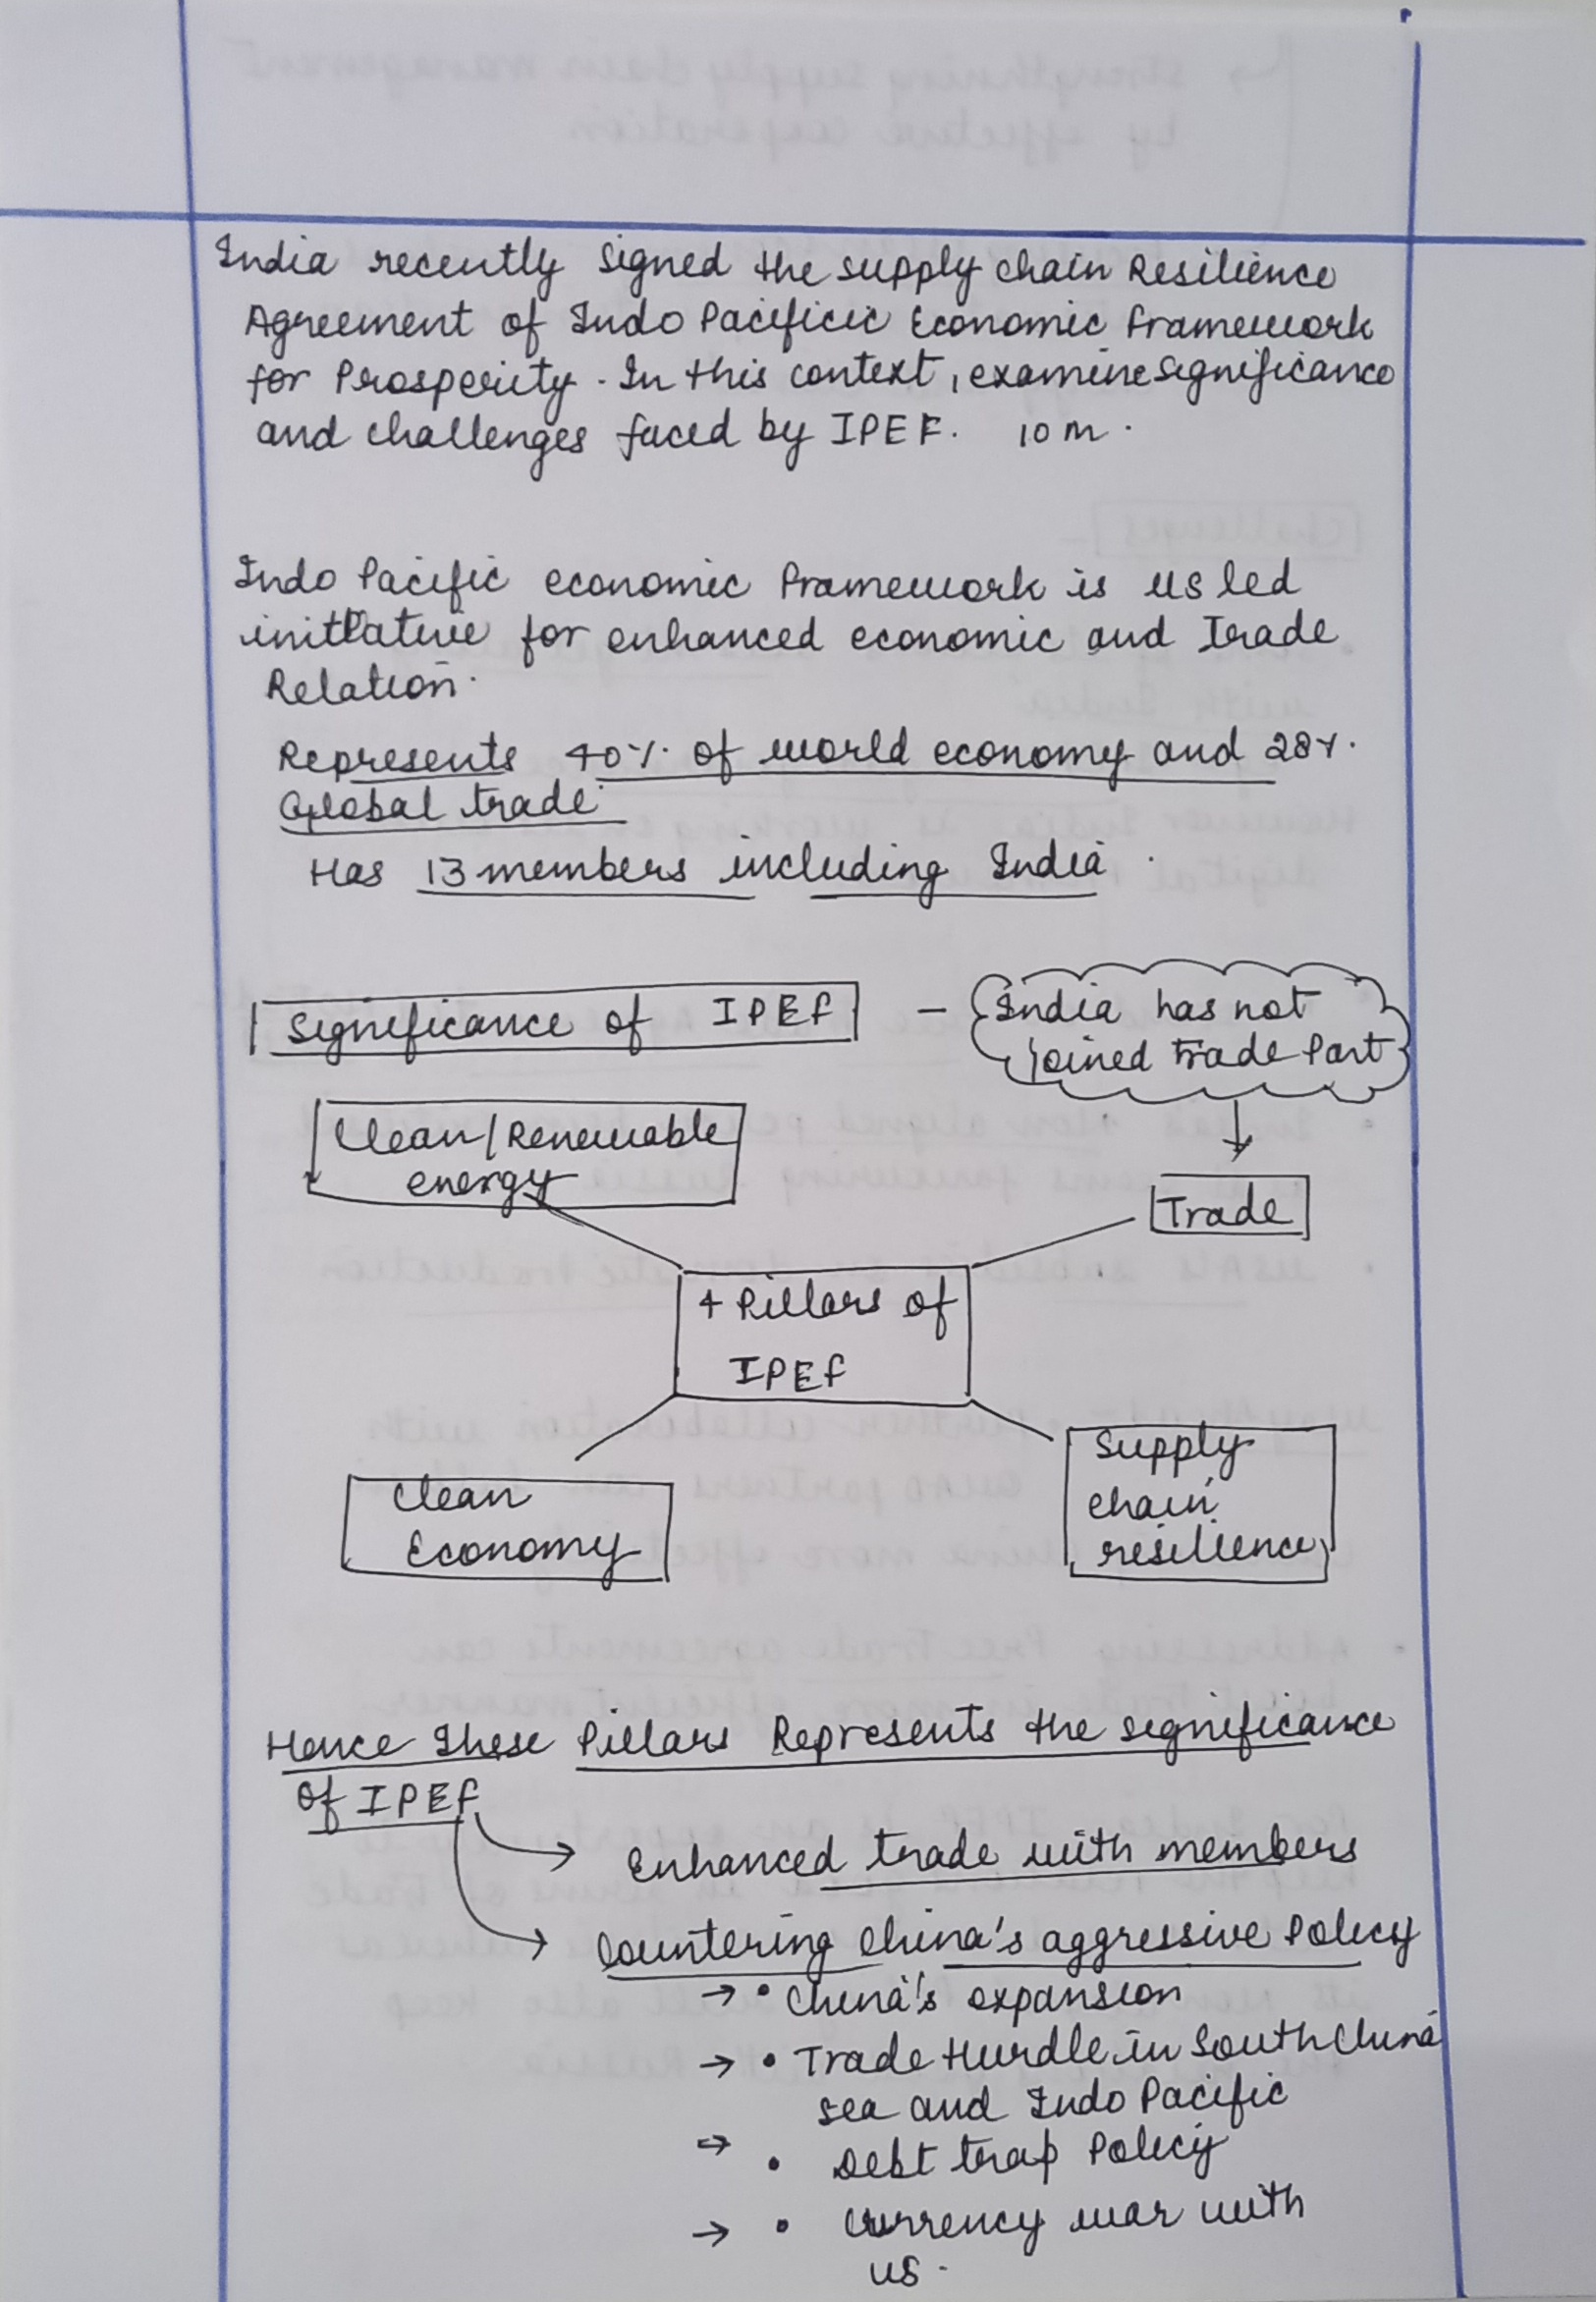 India recently signed the supply chain Resilience
Agreement of Indo Pacificic Economic framework
for Prosperity. In this context, examine significance
and challenges faced by IPEF. 10 m.
Indo Pacific economic framework is US led
initiative for enhanced economic and Trade
Relation.
Represents 40% of world economy and 28%.
Global trade
Has 13 members including India.
Significance of IPEF - India has not
joined trade Part
Clean/Renewable
energy
Trade
4 Pillars of
IPEF
Clean
Economy
Supply
chain
resilience
Hence these Pillars Represents the significance
of IPEF
→ Enhanced trade with members
→ Countering China's aggressive Policy
→ • China's expansion
→ • Trade Hurdle in South China
sea and Indo Pacific
→ • Debt trap Policy
→ • Currency war with
US.